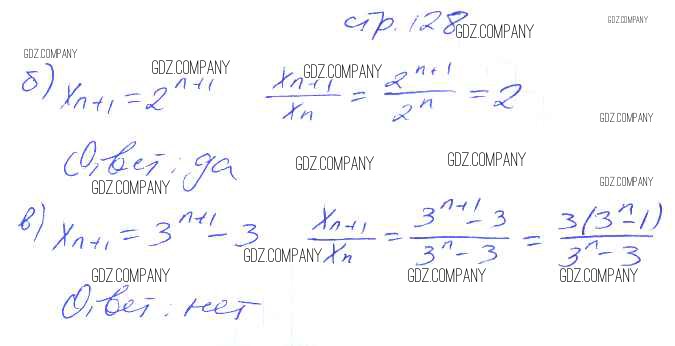 стр. 128 GDZ.COMPANY GDZ.COMPANY
GDZ.COMPANY GDZ.COMPANY GDZ.COMPANY
б) xₙ₊₁ = 2ⁿ⁺¹ xₙ₊₁/xₙ = 2ⁿ⁺¹/2ⁿ = 2
GDZ.COMPANY
Ответ: да GDZ.COMPANY GDZ.COMPANY
GDZ.COMPANY GDZ.COMPANY
в) xₙ₊₁ = 3ⁿ⁺¹ - 3 xₙ₊₁/xₙ = (3ⁿ⁺¹ - 3)/(3ⁿ - 3) = 3(3ⁿ - 1)/(3ⁿ - 3)
GDZ.COMPANY
GDZ.COMPANY GDZ.COMPANY GDZ.COMPANY
Ответ: нет